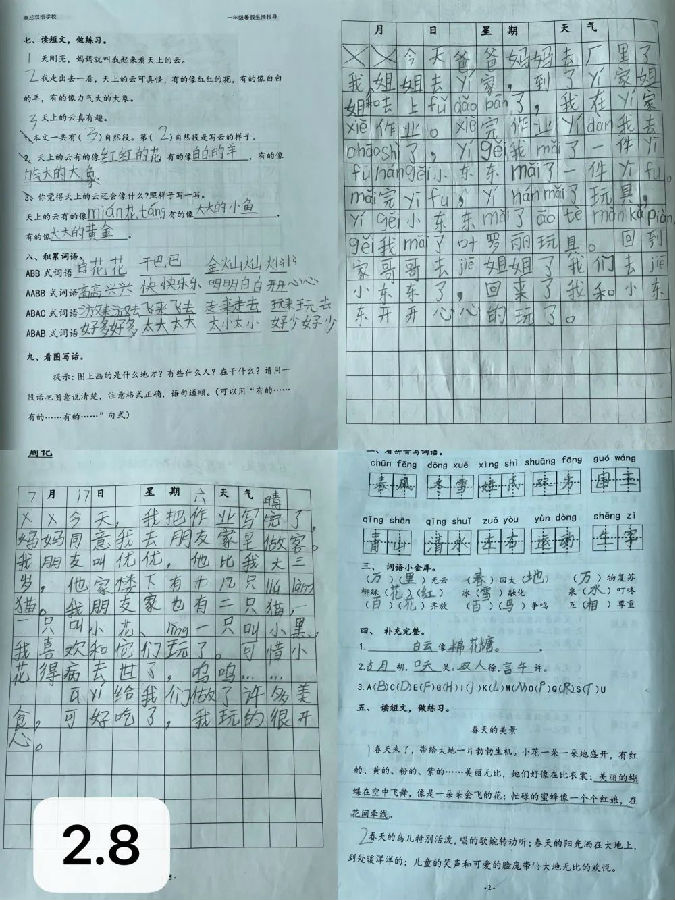 七、读短文，做练习。
1 天刚亮，妈妈就叫我起来看天上的云。
2 我走出去一看，天上的云可真怪，有的像红红的花，有的像白白
的羊，有的像力气大的大象。
3 天上的云真有趣。
1、本文一共有(3)自然段。第(2)自然段是写云的样子。
2、天上的云有的像红红的花 有的像白白的羊，有的像
大的大象
3、你觉得天上的云还会像什么？照样子写一写。
天上的云有的像mián花táng 有的像大大的小鱼，
有的像大大的黄金。
八、积累词语。
ABB 式词语 白花花 干巴巴 金灿灿
AABB 式词语 高高兴兴 快快乐乐 明明白白 开开心心
ABAC 式词语 游来游去 飞来飞去 走来走去 玩来玩去
ABAB 式词语 好多好多 太大太大 太小太小 好少好少
九、看图写话。
提示：图上画的是什么地方？有些什么人？在干什么？请用一
段话把图意说清楚，注意格式正确，语句通顺。(可以用“有的……
有的……有的……”句式)
月 日 星期 天气
今天爸爸妈妈去厂里了
我姐姐去yí家，到了yí家姐
姐和去上fǔ dǎo bān了，我在yí家
xiě作业。xiě完作业yí dān我去
chāo shì了，yí gěi我mǎi了一件yī
fu háng gěi小东东mǎi了一件yī fu。
mǎi完yī fu，yí hán mǎi了玩具，
yí gěi小东东mǎi了ào tè màn kǎ piàn，
gěi我mǎi了叶罗丽玩具。回到
家哥哥去jiē姐姐了我们去jiē
小东东了，回来了我和小东
东开开心心的玩了。
周记
7月17日 星期六 天气 晴
今天，我把作业写完了，
妈妈同意我去朋友家里做客。
我朋友叫优优，他比我大三
岁，他家楼下有
猫。我朋友家也有二只猫，一
一只叫小花、lìng一只叫小黑，
我喜欢和它们玩了。可惜小
花得病去世了，呜呜……
yí给我们做了许多美
食，可好吃了，我玩的很开
心。
2.8
二、看拼音写词语。
chūn fēng dōng xuě xìng shì shuāng fāng guó wáng
春风 冬雪 姓氏 双方 国王
qīng shān qīng shuǐ zuǒ yòu yùn dòng shēng zì
青山 清水 左右 运动 生字
三、词语小金库。
(万)(里)无云 (春)回大(地) (万)物复苏
柳绿(花)(红) 冰(雪)融化 泉(水)叮咚
(百)(花)齐放 (百)(鸟)争鸣 互(相)尊重
四、补充完整。
1. 白云像棉花糖。
3.A(B)C(D)E(F)G(H)I(J)K(L)M(N)O(P)Q(R)S(T)U
五、读短文，做练习。
春天的美景
1 春天来了，带给大地一片勃勃生机。小花一朵一朵地盛开，有红
的、黄的、粉的、紫的……美丽无比，她们好像在比衣裳；美丽的蝴
蝶在空中飞舞，像是一朵朵会飞的花；忙碌的蜜蜂像一个个红娘，在
花间牵线。
2 春天的鸟儿特别活泼，唱的歌婉转动听；春天的阳光洒在大地上，
到处暖洋洋的；儿童的笑声和可爱的脸庞带给大地无比的欢悦。
-2-